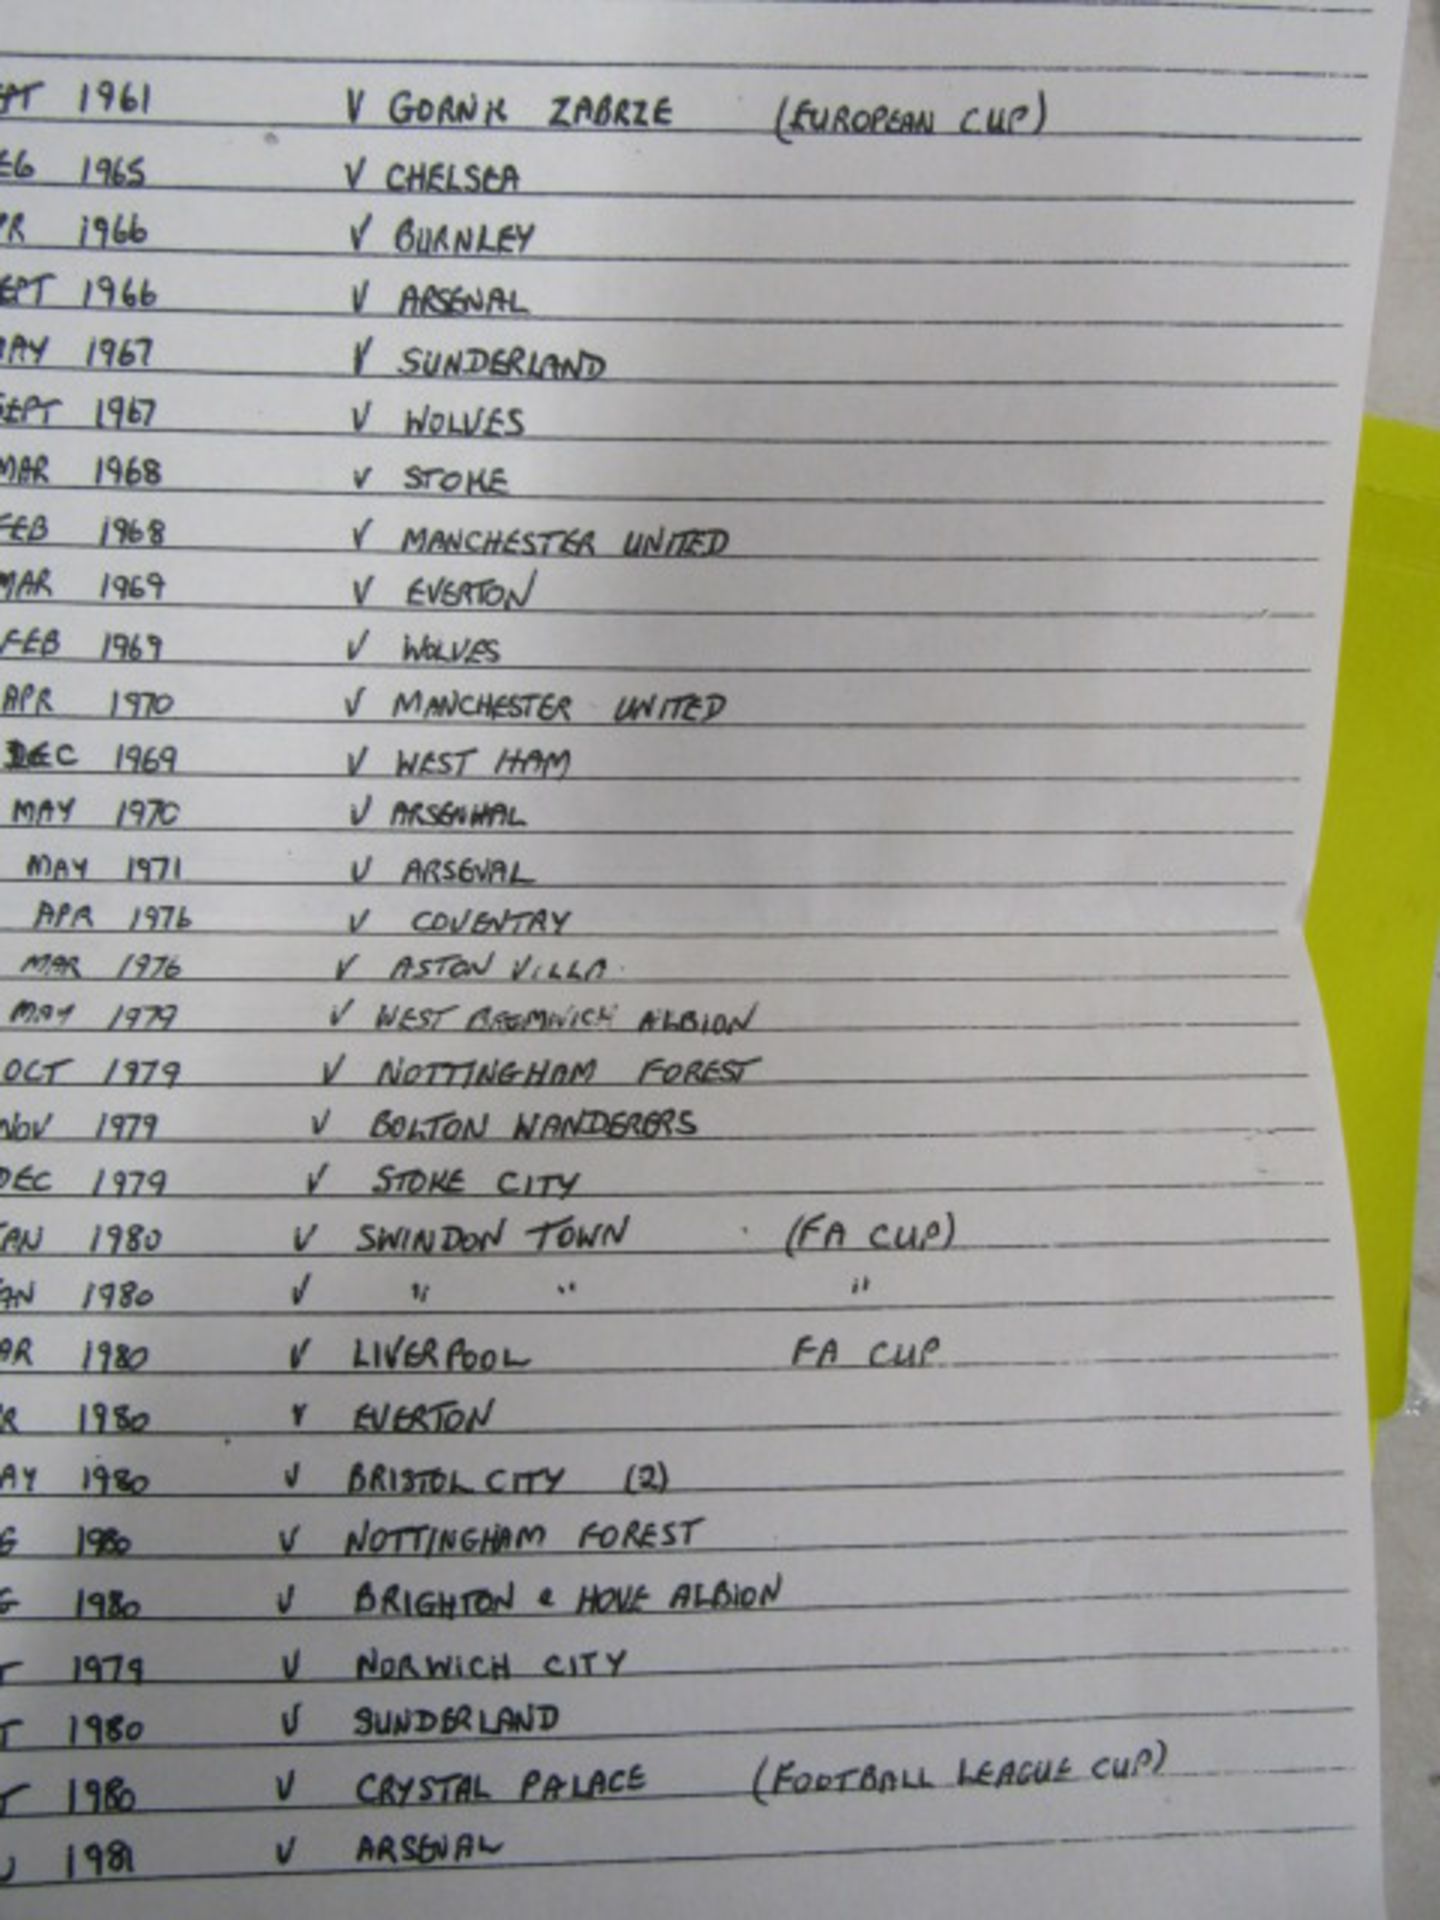 PT 1961 V GORNIK ZABRZE (EUROPEAN CUP)
EG 1965 V CHELSEA
PR 1966 V BURNLEY
EPT 1966 V ARSENAL
MAY 1967 V SUNDERLAND
SEPT 1967 V WOLVES
MAR 1968 V STOKE
FEB 1968 V MANCHESTER UNITED
MAR 1969 V EVERTON
FEB 1969 V WOLVES
APR 1970 V MANCHESTER UNITED
DEC 1969 V WEST HAM
MAY 1970 V ARSENAL
MAY 1971 V ARSENAL
APR 1976 V COVENTRY
MAR 1976 V ASTON VILLA
MAY 1979 V WEST BROMWICH ALBION
OCT 1979 V NOTTINGHAM FOREST
NOV 1979 V BOLTON WANDERERS
DEC 1979 V STOKE CITY
AN 1980 V SWINDON TOWN (FA CUP)
AN 1980 V " " "
AR 1980 V LIVERPOOL FA CUP
R 1980 V EVERTON
AY 1980 V BRISTOL CITY (2)
G 1980 V NOTTINGHAM FOREST
G 1980 V BRIGHTON & HOVE ALBION
T 1979 V NORWICH CITY
T 1980 V SUNDERLAND
T 1980 V CRYSTAL PALACE (FOOTBALL LEAGUE CUP)
1981 V ARSENAL